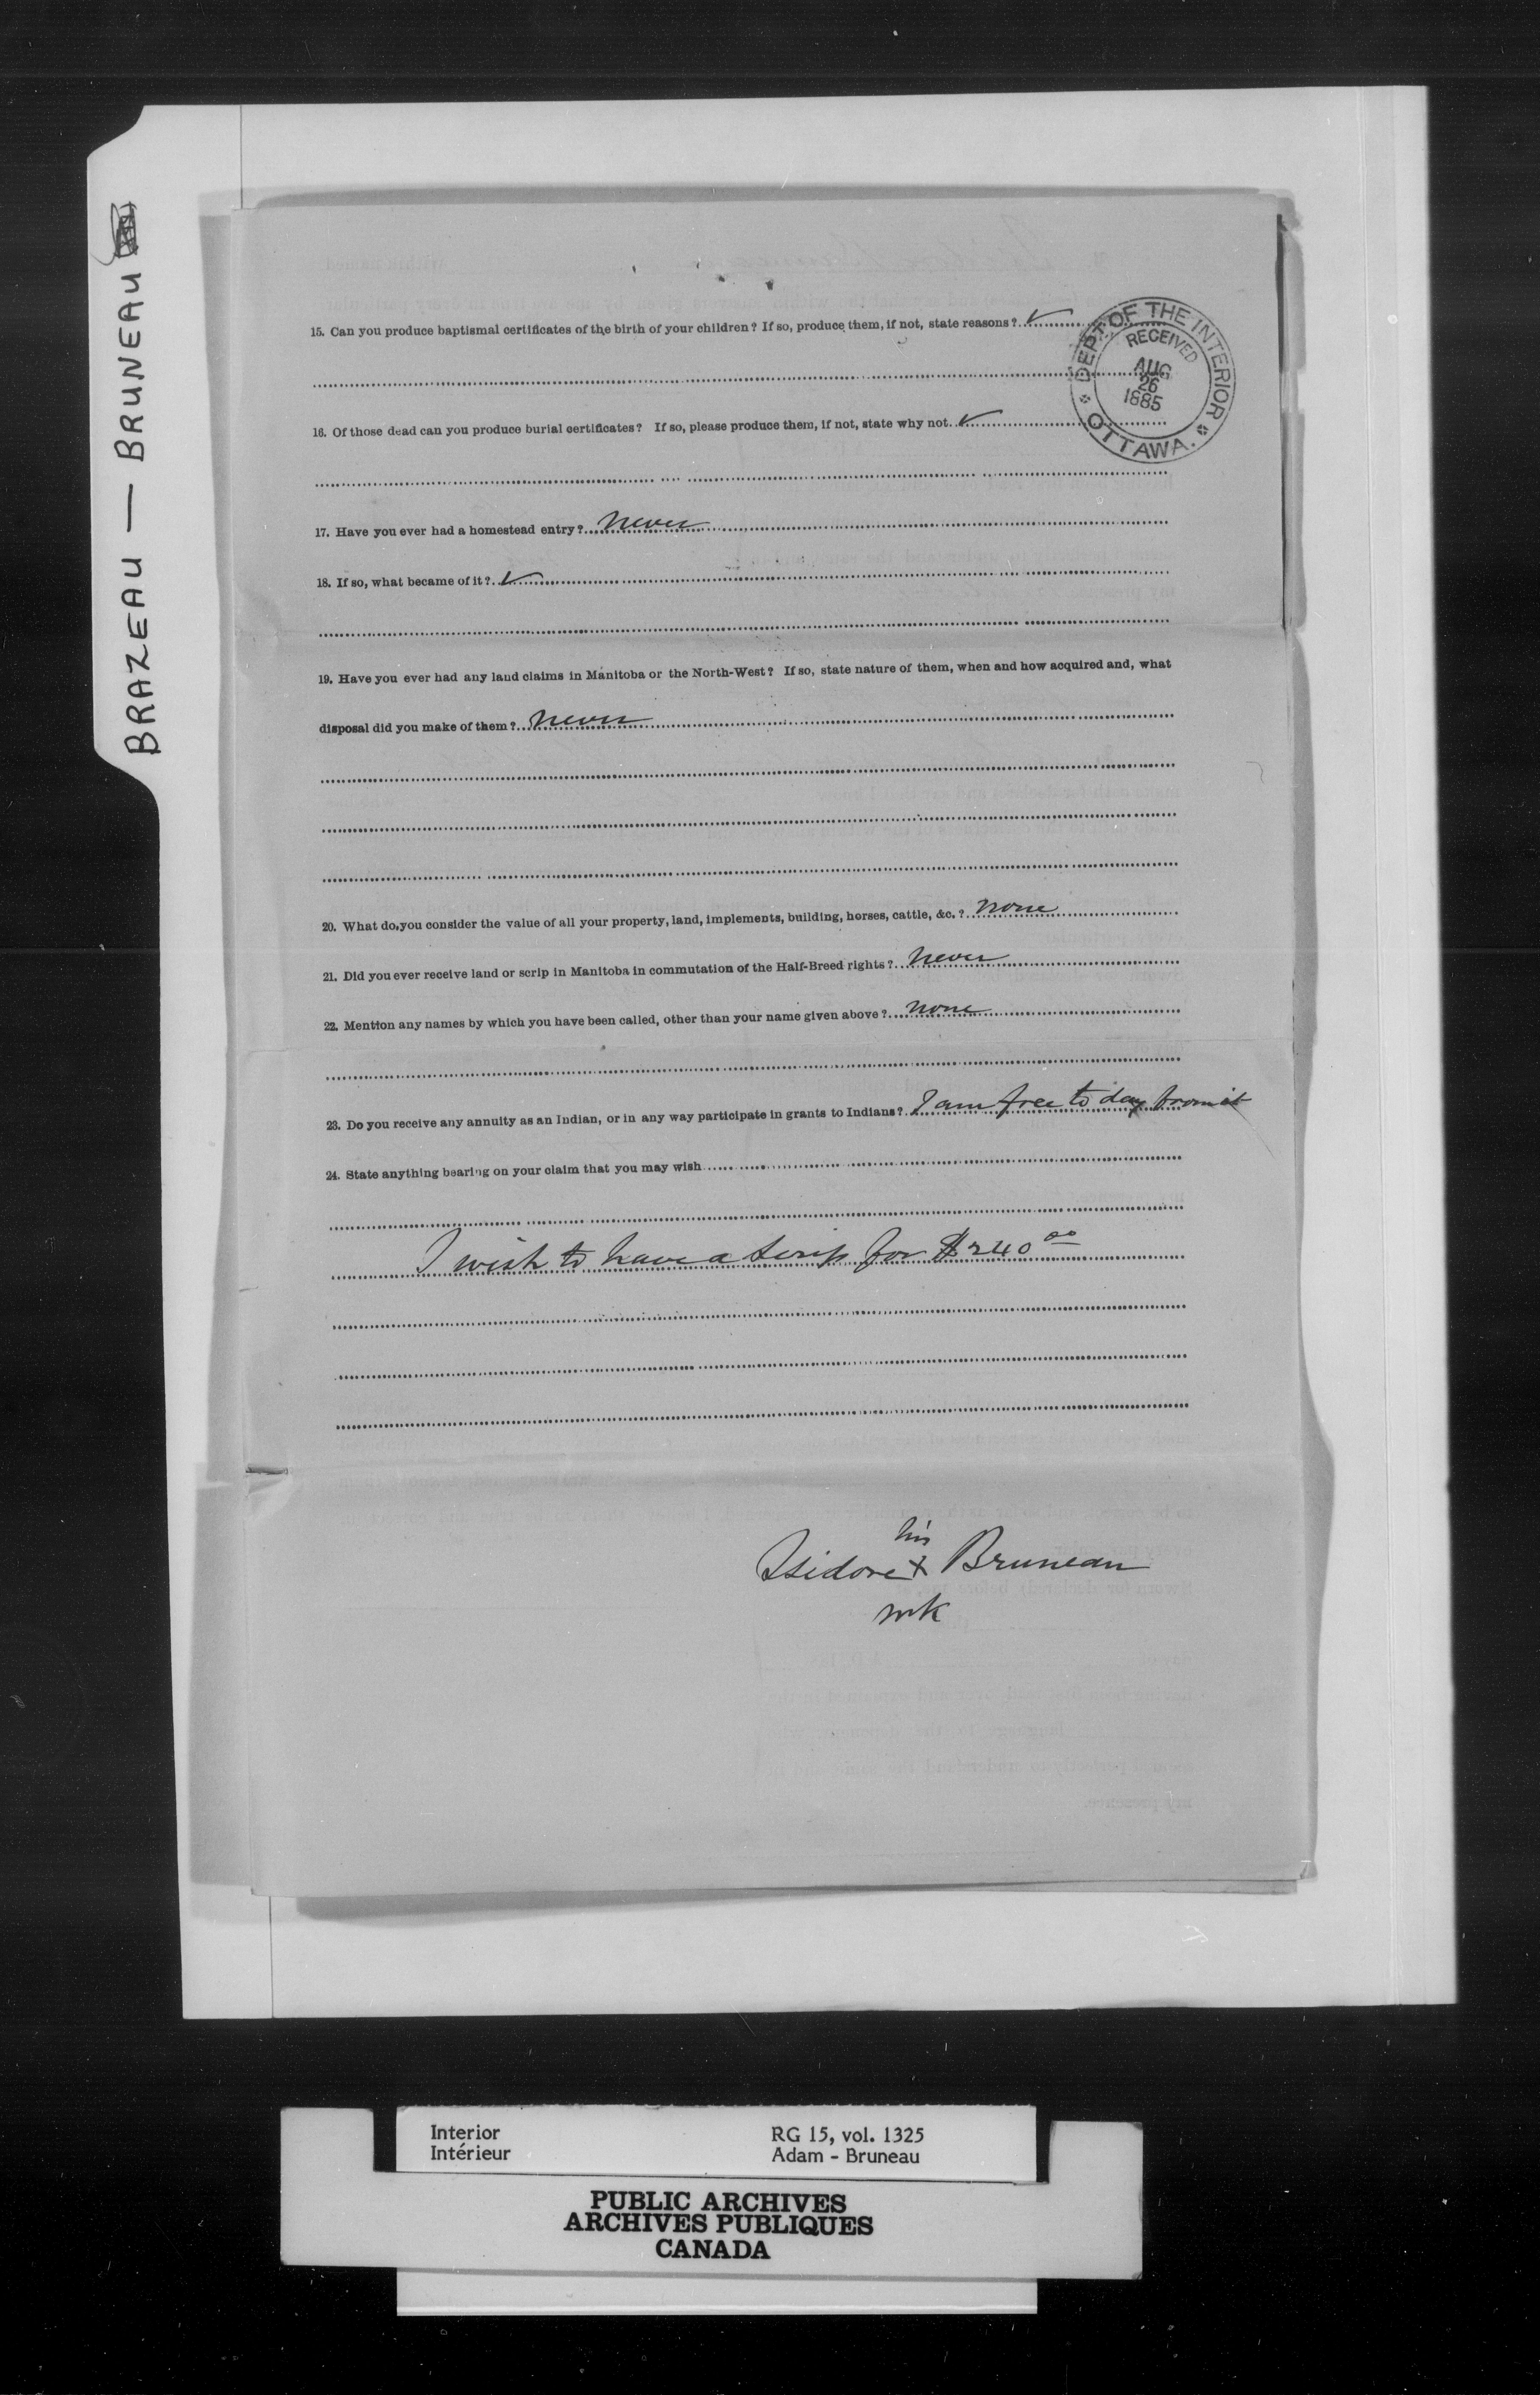 BRAZEAU — BRUNEAU
15. Can you produce baptismal certificates of the birth of your children? If so, produce them, if not, state reasons? ✓
DEPT OF THE INTERIOR
RECEIVED
AUG
26
1885
OTTAWA.
16. Of those dead can you produce burial certificates? If so, please produce them, if not, state why not. ✓
17. Have you ever had a homestead entry? Never
18. If so, what became of it? ✓
19. Have you ever had any land claims in Manitoba or the North-West? If so, state nature of them, when and how acquired and, what
disposal did you make of them? Never
20. What do you consider the value of all your property, land, implements, building, horses, cattle, &c.? None
21. Did you ever receive land or scrip in Manitoba in commutation of the Half-Breed rights? Never
22. Mention any names by which you have been called, other than your name given above? None
23. Do you receive any annuity as an Indian, or in any way participate in grants to Indians? I am free to day from it
24. State anything bearing on your claim that you may wish
I wish to have a scrip for $240 00
his
Isidore X Bruneau
mk
Interior
RG 15, vol. 1325
Intérieur
Adam - Bruneau
PUBLIC ARCHIVES
ARCHIVES PUBLIQUES
CANADA